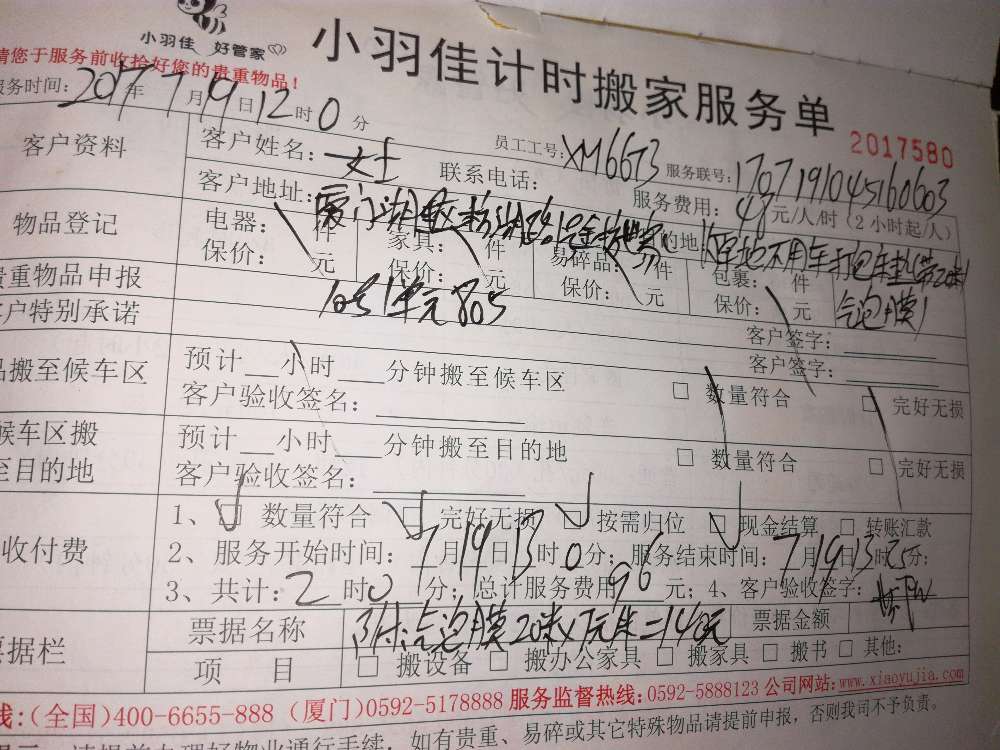 小羽佳 好管家
小羽佳计时搬家服务单
请您于服务前收拾好您的贵重物品!
2017580
服务时间: 2017年7月19日12时0分
员工工号: XM6673 服务联号: 1707191045160603
客户资料
客户姓名: 女士 联系电话: 服务费用: 48元/人/时(2小时起/人)
客户地址: 厦门湖里区
的地
物品登记
电器: 件 家具: 件 易碎品: 件 包裹: 件
保价: 元 保价: 元 保价: 元 保价: 元
气泡膜)
10号1单元805
贵重物品申报 客户签字:
客户特别承诺 客户签字:
品搬至候车区
预计__小时___分钟搬至候车区 □ 数量符合 □ 完好无损
客户验收签名:
候车区搬
至目的地
预计__小时___分钟搬至目的地 □ 数量符合 □ 完好无损
客户验收签名:
收付费
1、□ 数量符合 □ 完好无损 □ 按需归位 □ 现金结算 □ 转账汇款
2、服务开始时间: 7月19日13时0分; 服务结束时间: 7月19日13时25分;
3、共计: 2时0分; 总计服务费用96元; 4、客户验收签字:
票据栏
票据名称 另付气泡膜20米x7元/米=140元 票据金额
项 目 □ 搬设备 □ 搬办公家具 □ 搬家具 □ 搬书 □ 其他:
线:(全国)400-6655-888 (厦门)0592-5178888 服务监督热线:0592-5888123 公司网站:www.xiaoyujia.com
请提前办理好物业通行手续,如有贵重、易碎或其它特殊物品请提前申报,否则我司不予负责。